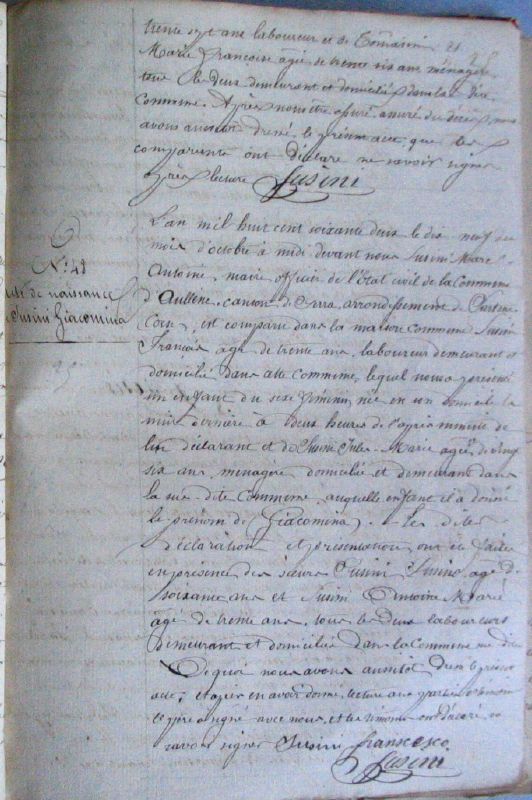 trente sept ans laboureur et de Tomasini
Marie Françoise âgée de trente six ans ménagère
tous les deux demeurant et domiciliés dans la dite
Commune. Après nous être assuré du décès, nous
avons aussitôt dressé le présent acte, que les
comparants ont déclaré ne savoir signer
après lecture Susini
N.° 48
acte de naissance
Susini Giacomina
L'an mil huit cent soixante deux le dix neuf du
mois d'octobre à midi devant nous Susini Marc
Antoine, maire officier de l'État civil de la Commune
d'Aullène, canton de Serra, arrondissement de Sartene
Corse, est comparu dans la maison commune Susini
François âgé de trente ans, laboureur demeurant et
domicilié dans cette Commune, lequel nous a présenté
un enfant du sexe féminin, née en son domicile la
nuit dernière à deux heures de l'après minuit de
lui déclarant et de Susini Marie âgée de vingt
six ans, ménagère domiciliée et demeurant dans
la susdite Commune, auquelle enfant il a donné
le prénom de Giacomina. Les dites
déclaration et présentation ont été faites
en présence des sieurs Susini âgé de
soixante ans et Susini Antoine Marie
âgé de trente ans, tous les deux laboureurs
demeurant et domiciliés dans la Commune
De quoi nous avons aussitôt dressé le présent
acte, et après en avoir donné lecture aux parties
le père a signé avec nous, et les témoins ont déclaré ne
savoir signer Susini francesco
Susini